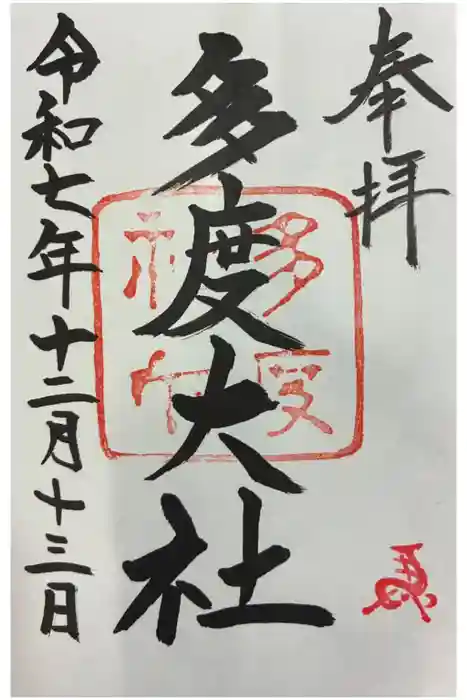 奉拝
多度大社
令和七年十二月十三日
多度
馬